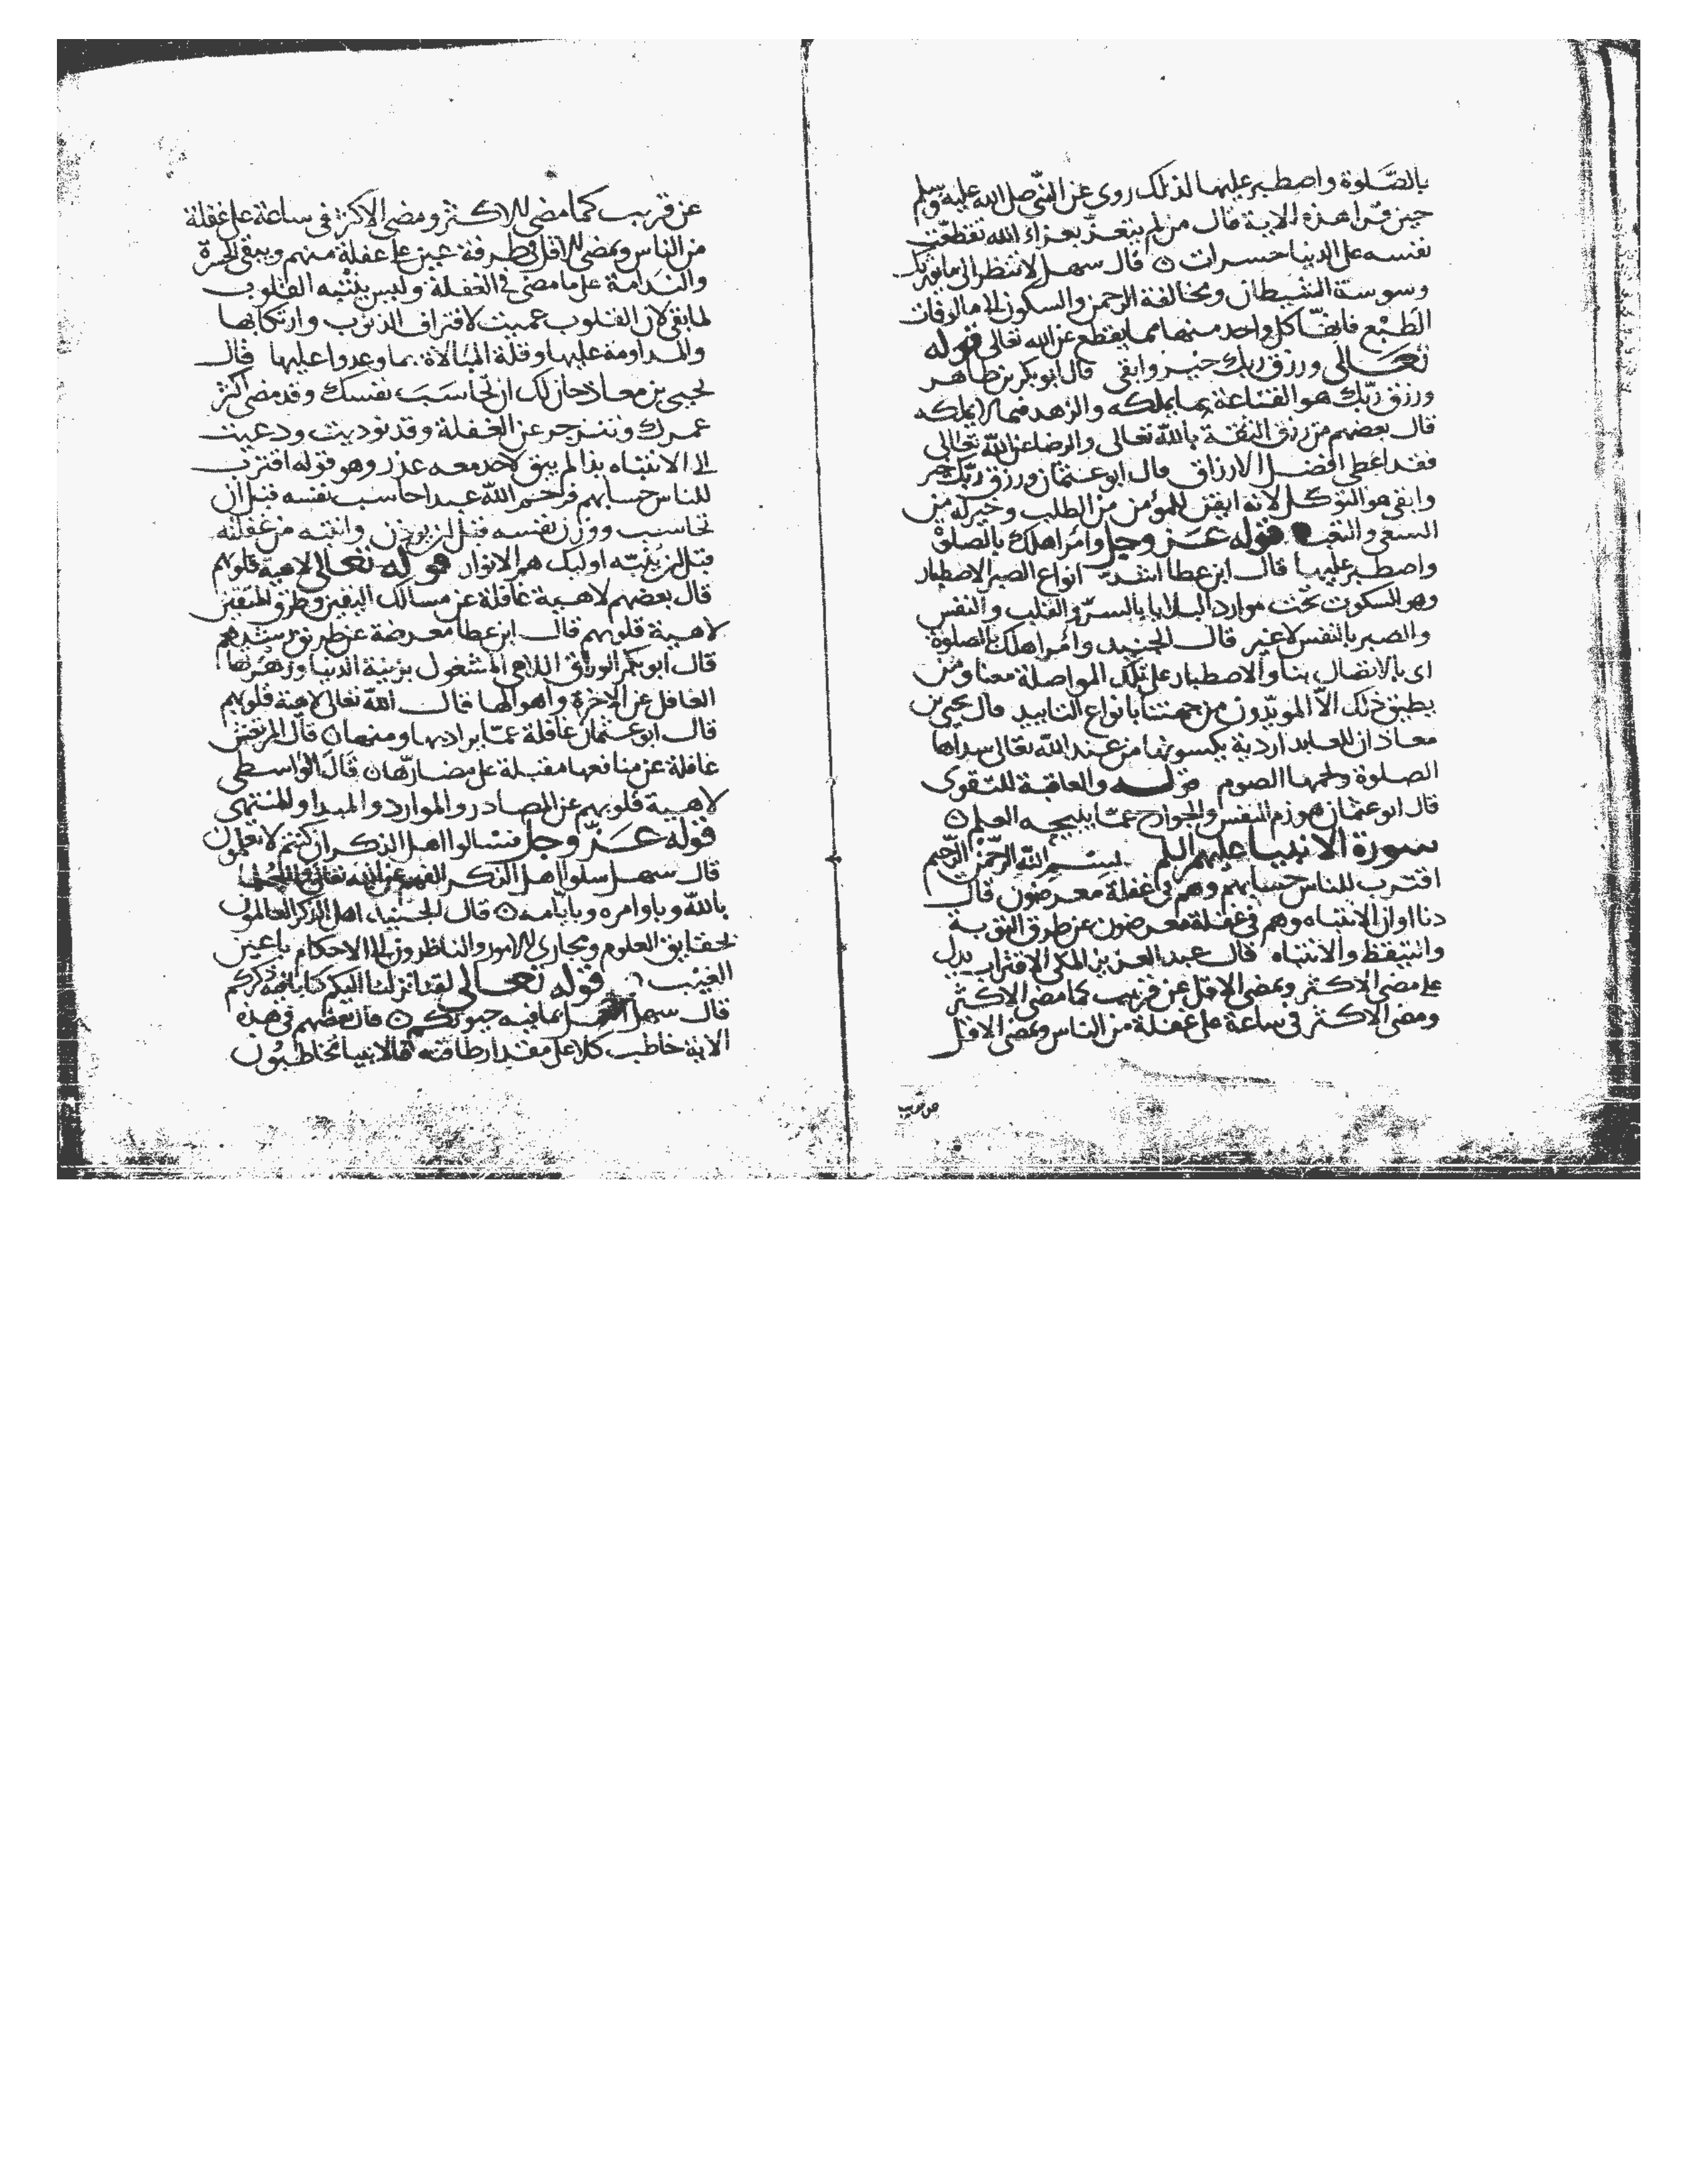 بالصَّلوة واصطبر عليها لذلك روى عن النبي صلى الله عليه وسلم
حين قرا هذه الاية قال من لم يتعز بعزاء الله تقطعت
نفسه على الدنيا حسرات ه قال سهل لا تنظر الى ما يورثك
وسوسة الشيطان ومخالفة الرحمن والسكون الى مالوفات
الطبع فايضا كل واحد منهما مما يقطع عن الله تعالى قوله
تعالى ورزق ربك خير وابقى قال ابو بكر بن طاهر
ورزق ربّك هو القناعة بما يملكه والزهد فيما لا يملكه
قال بعضهم من رزق الثقة بالله تعالى والرضا عن الله تعالى
فقد اعطى افضل الارزاق قال ابو عثمان ورزق ربّك خير
وابقى هو التوكل لانه ابقى للمؤمن من الطلب وخير له من
السعى والتعب قوله عز وجل وأمر اهلك بالصلوة
واصطبر عليها قال ابن عطا اشد انواع الصبر الاصطبار
وهو السكوت تحت موارد البلايا بالسرّ والقلب والنفس
والصبر بالنفس لا غير قال الجنيد وأمر اهلك بالصلوة
اى بالاتصال بنا والاصطبار على تلك المواصلة معنا ومن
يطيق ذلك الاّ المويّدون من جهتنا بانواع التاييد قال يحيى بن
معاذ ان للعابد اردية يكسونها من عند الله تعالى سداها
الصلوة ولحمها الصوم قوله والعاقبة للتقوى
قال ابو عثمان هو زم النفس والجوارح عمّا يبيحه العلم ه
سورة الانبيا عليهم السلم بسم الله الرحمن الرحيم
اقترب للناس حسابهم وهم فى غفلة معرضون قال
دنا اوان الانتباه وهم فى غفلة معرضون عن طرق التوبة
والتيقظ والانتباه قال عبد العزيز المكى الاقتراب يدل
على مضى الاكثر ويمضى الاقل عن قريب كما مضى الاكثر
ومضى الاكثر فى ساعة على غفلة من الناس ويمضى الاقل
عن قريب
عن قريب كما مضى الاكثر ومضى الاكثر فى ساعة على غفلة
من الناس ويمضى الاقل فى طرفة عين على غفلة منهم ويبقى الحسرة
والندامة على ما مضى فى الغفلة وليس ينتبه القلوب
لما بقى لان القلوب عميت لاقتراف الذنوب وارتكابها
والمداومة عليها وقلة المبالاة بما وعدوا عليها قال
يحيى بن معاذ حان لك ان تحاسب نفسك وقد مضى اكثر
عمرك وتنزجر عن الغفلة وقد نوديت ودعيت
الى الانتباه بذا لم يبق لاحد معه عذر وهو قوله اقترب
للناس حسابهم فرحم الله عبدا حاسب نفسه قبل ان
تحاسب ووزن نفسه قبل ان يوزن وانتبه من غفلته
قبل ان ينبّه اوليك هم الانوار قوله تعالى لاهية قلوبهم
قال بعضهم لاهية غافلة عن مسالك اليقين وطرق المتقين
لاهية قلوبهم قال ابن عطا معرضة عن طريق رشدهم
قال ابو بكر الوراق اللاهى المشغول بزينة الدنيا وزهرتها
الغافل عن الاخرة واهوالها قال الله تعالى لاهية قلوبهم
قال ابو عثمان غافلة عمّا يراد بها ومنها ه قال المرتعش
غافلة عن منافعها مقبلة على مضارّها ه قال الواسطى
لاهية قلوبهم عن المصادر والموارد والمبدا والمنتهى
قوله عز وجل فسالوا اهل الذكر ان كنتم لا تعلمون
قال سهل سلوا اهل الذكر الفهم عن الله تعالى
بالله وباوامره وبايّامه ه قال الجنيد اهل الذكر العالمون
بحقايق العلوم ومجارى الامور والناظرون الى الاحكام باعين
الغيب ه قوله تعالى لقد انزلنا اليكم كتابا فيه ذكركم
قال سهل بما فيه حيوتكم ه قال بعضهم فى هذه
الاية خاطب كلا على مقدار طاقته فالانبيا مخاطبون